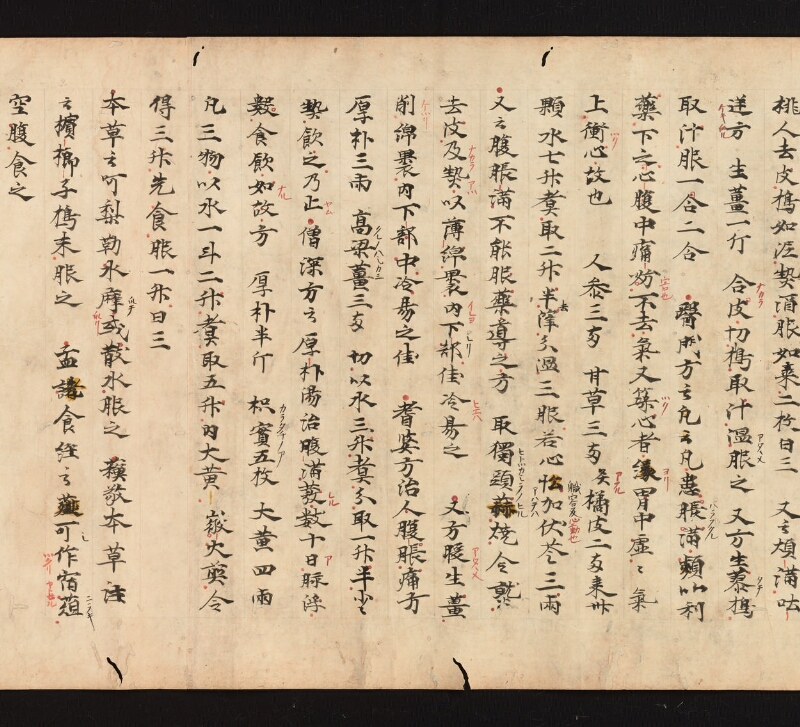 桃人去皮搗如泥熨酒服如棗二枚日三 又云煩滿呿
逆方 生薑一斤 合皮切搗取汁温服之 又方生搗
取汁服一合二合 醫門方云凡云凡患脹滿類以利
藥下之心腹中痛妨不去氣又築心者緣胃中虛々氣
上衝心故也 人參三兩 甘草三兩 橘皮二兩 棗卅
顆 水七升煮取二升半去滓分温三服若心加伏苓三兩
又云腹脹滿不能服藥導之方 取獨頭蒜燒令熟
去皮及熱以薄綿裹內下部佳冷易之 又方服生薑
削綿裹內下部中冷易之佳 耆婆方治人腹脹痛方
厚朴三兩 高梁薑三兩 切以水三升煮分取一升半
熱飲之乃止 僧深方云厚朴湯治腹滿發數十日脉浮
數食飲如故方 厚朴半斤 枳實五枚 大黃四兩
凡三物以水一斗二升煮取五升內大黃 微火煎令
得三升先食服一升日三
本草云呵梨勒水摩或散水服之 蘇敬本草注
云檳榔子搗末服之 孟詵食經云 可作宿葅
空腹食之